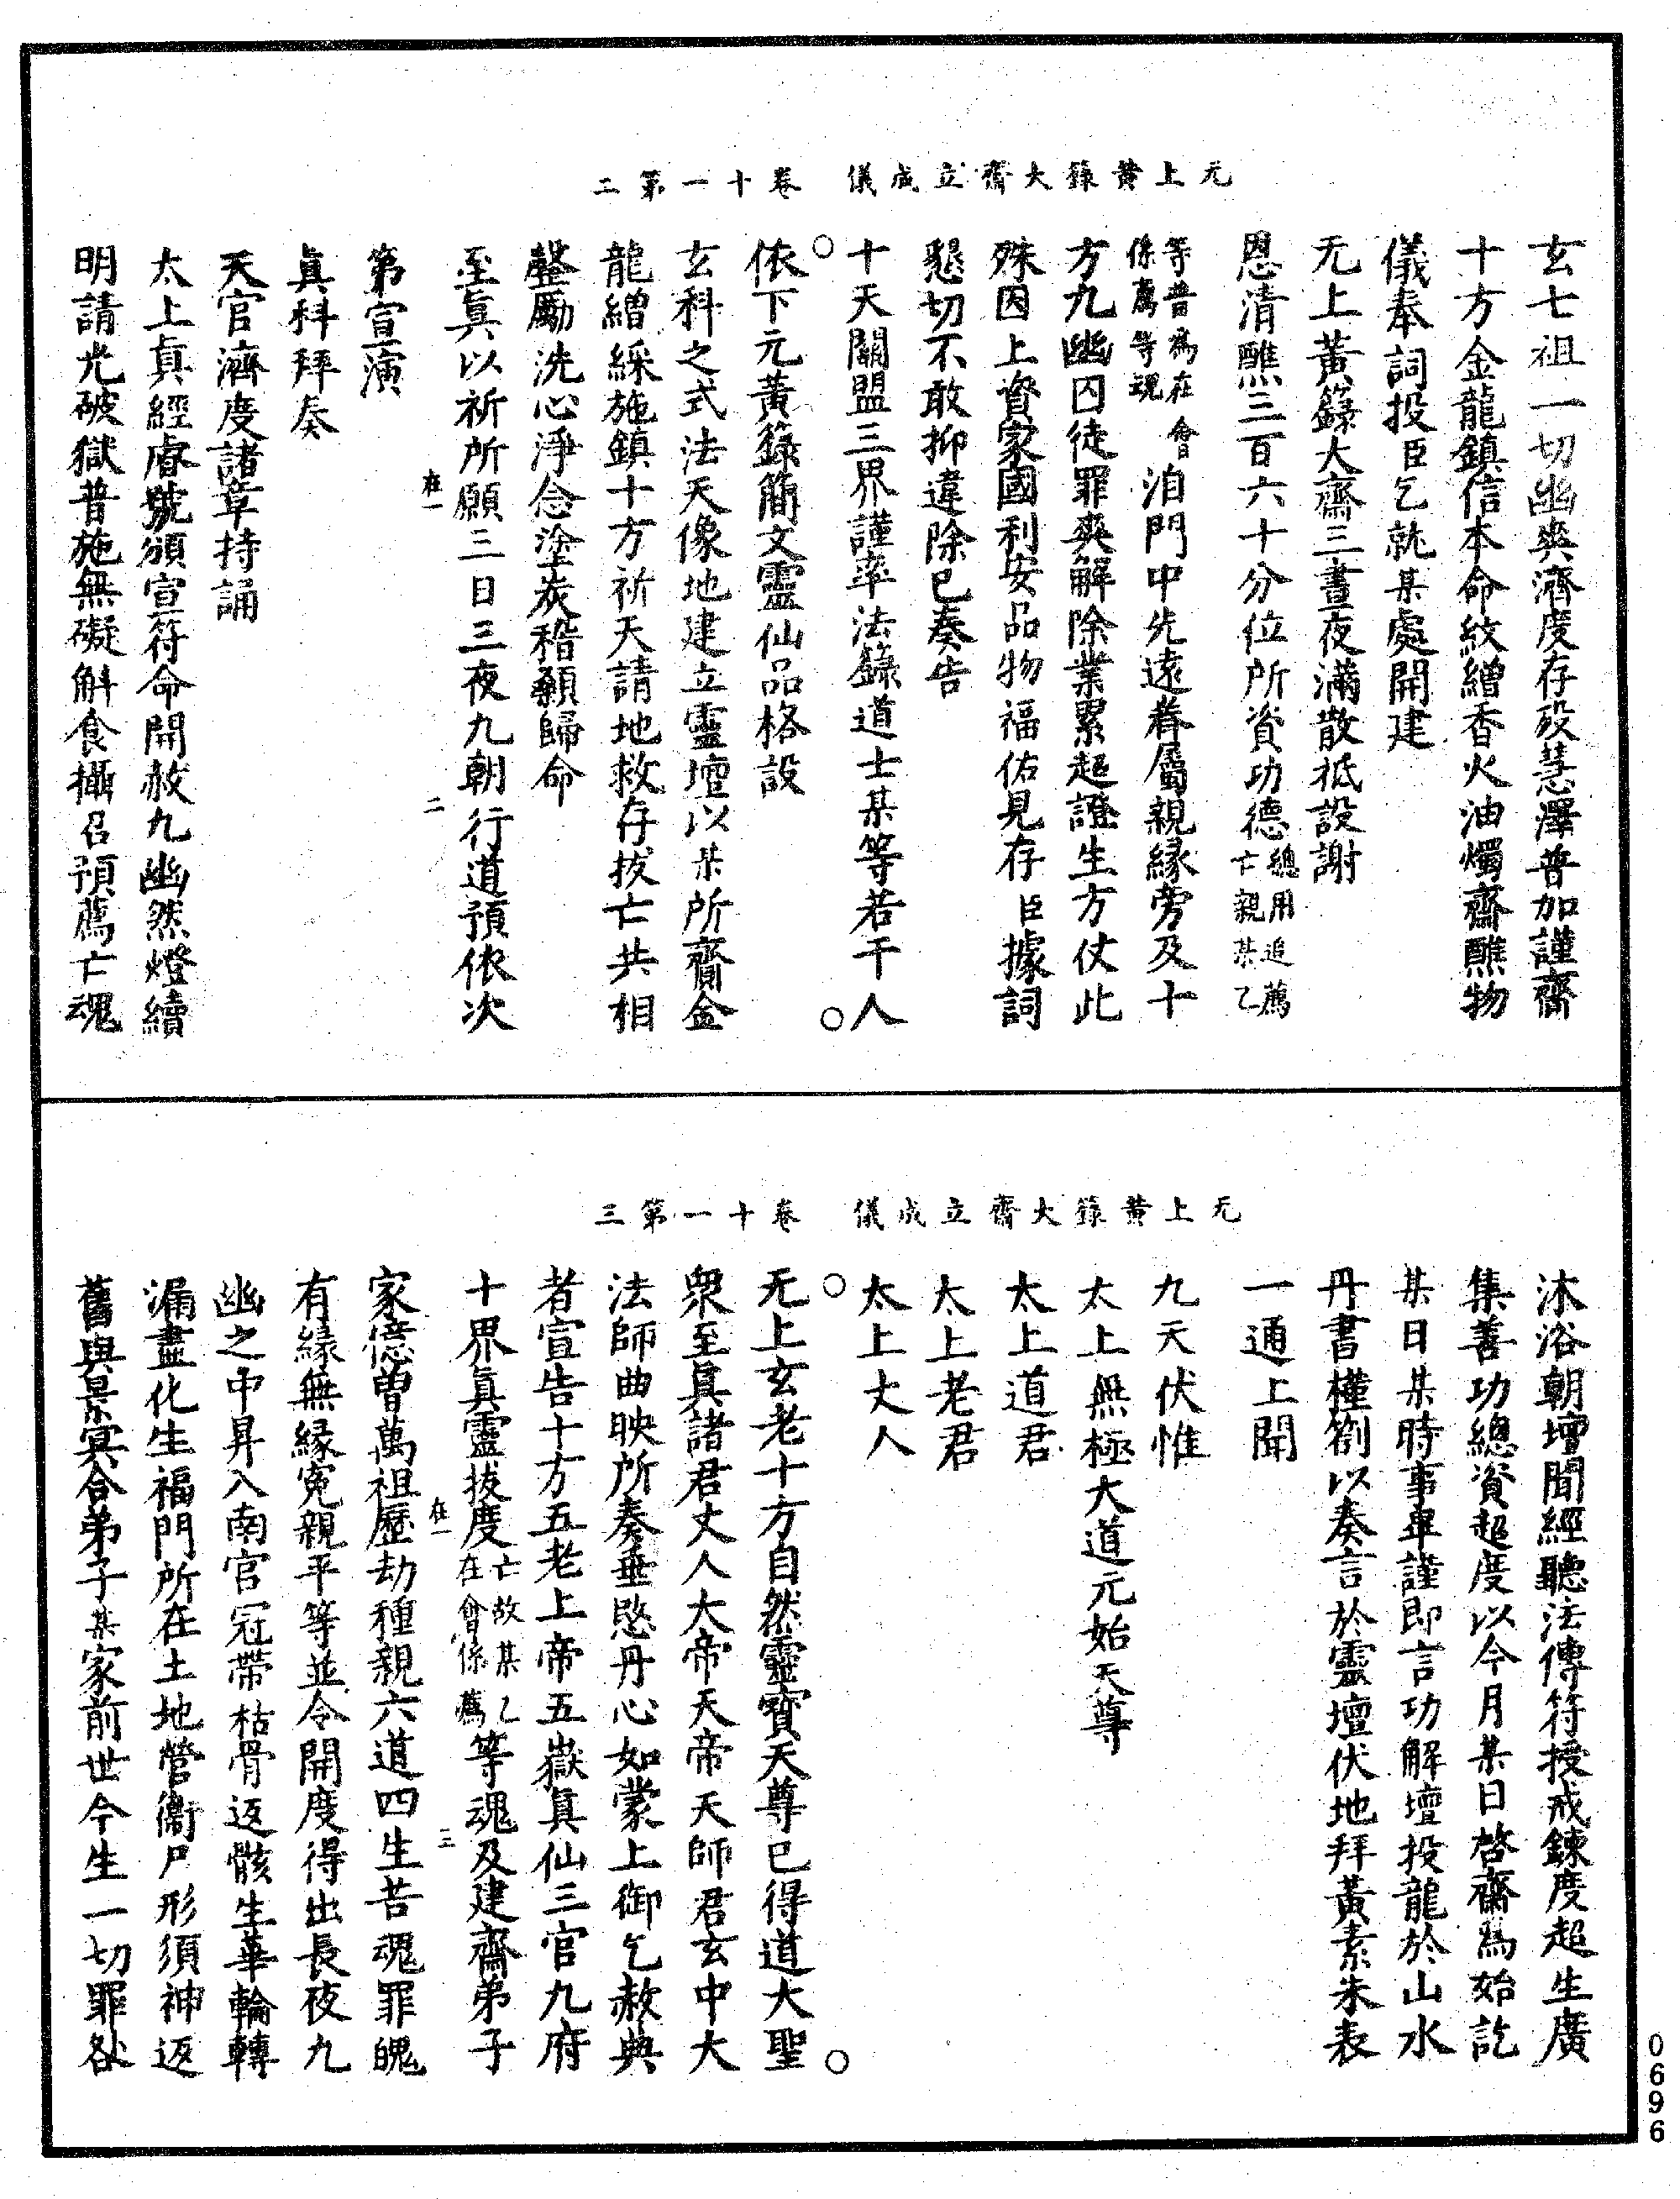 无上黃籙大齋立成儀　卷十一第二
玄七祖一切幽爽濟度存歿慧澤普加謹齋
十方金龍鎮信本命紋繒香火油燭齋醮物
儀奉詞投臣乞就某處開建
无上黃籙大齋三晝夜滿散祗設謝
恩清醮三百六十分位所資功德總用追薦亡親某乙
等普為在會係薦等魂洎門中先遠眷屬親緣旁及十
方九幽囚徒罪爽解除業累超證生方仗此
殊因上資家國利安品物福佑見存臣據詞
懇切不敢抑違除已奏告
十天關盟三界謹率法籙道士某等若干人
○依下元黃籙簡文靈仙品格設○
玄科之式法天像地建立靈壇以某所齎金
龍繒綵施鎮十方祈天請地救存拔亡共相
罄勵洗心淨念塗炭稽顙歸命
至真以祈所願三日三夜九朝行道預依次
在一　二
第宣演
真科拜奏
天官濟度諸章持誦
太上真經膚號頒宣符命開赦九幽然燈續
明請光破獄普施無礙斛食攝召預薦亡魂
无上黃籙大齋立成儀　卷十一第三
沐浴朝壇聞經聽法傳符授戒鍊度超生廣
集善功總資超度以今月某日啓齋為始訖
某日某時事畢謹即言功解壇投龍於山水
丹書槿簡以奏言於靈壇伏地拜黃素朱表
一通上聞
九天伏惟
太上無極大道元始天尊
太上道君
太上老君
太上丈人
○无上玄老十方自然靈寶天尊已得道大聖○
眾至真諸君丈人大帝天帝天師君玄中大
法師曲映所奏垂愍丹心如蒙上御乞赦典
者宣告十方五老上帝五嶽真仙三官九府
十界真靈拔度亡故某乙在會係薦等魂及建齋弟子
在一　三
家億曾萬祖歷劫種親六道四生苦魂罪魄
有緣無緣寃親平等並令開度得出長夜九
幽之中昇入南宮冠帶枯骨返骸生華輪轉
漏盡化生福門所在土地營衞尸形須神返
舊與景冥合弟子某家前世今生一切罪咎
0696